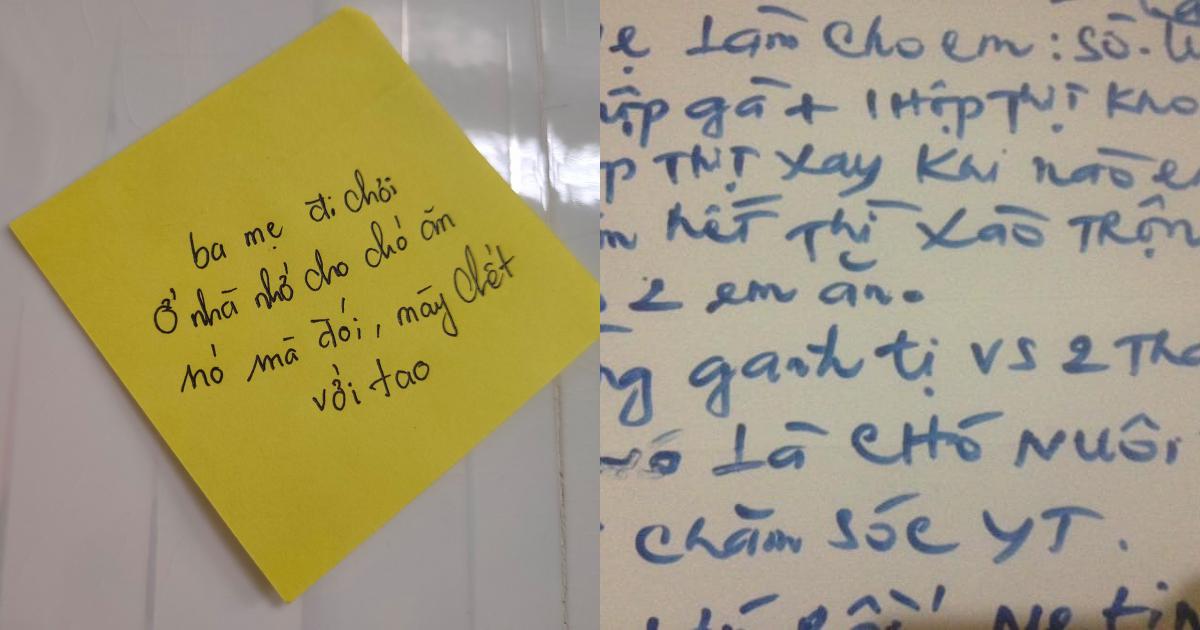 ba mẹ đi chơi
Ở nhà nhớ cho chó ăn
nó mà đói, mày chết
với tao
mẹ làm cho em: số.
hộp gà + 1 Hộp Thịt kho
Thịt xay khi nào em
hết Thì xào Trộn
2 em ăn.
ganh tị vs 2
Là CHÓ NUÔI
chăm sóc YT.